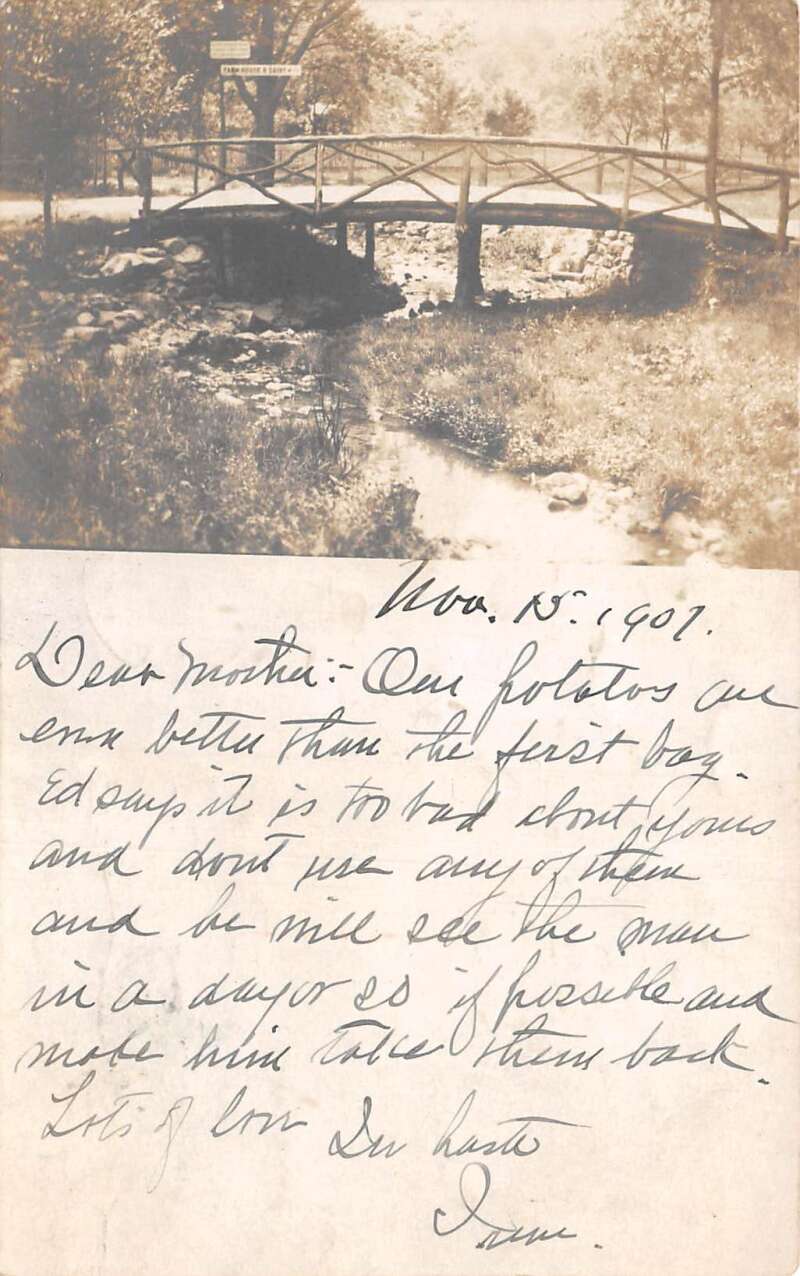 FARM HOUSE & DAIRY
Nov. 15. 1907.
Dear Mother:- Our potatos are
even better than the first bag.
Ed says it is too bad about yours
and dont use any of them
and he will see the man
in a day or so if possible and
make him take them back.
Lots of love In haste
Irene.